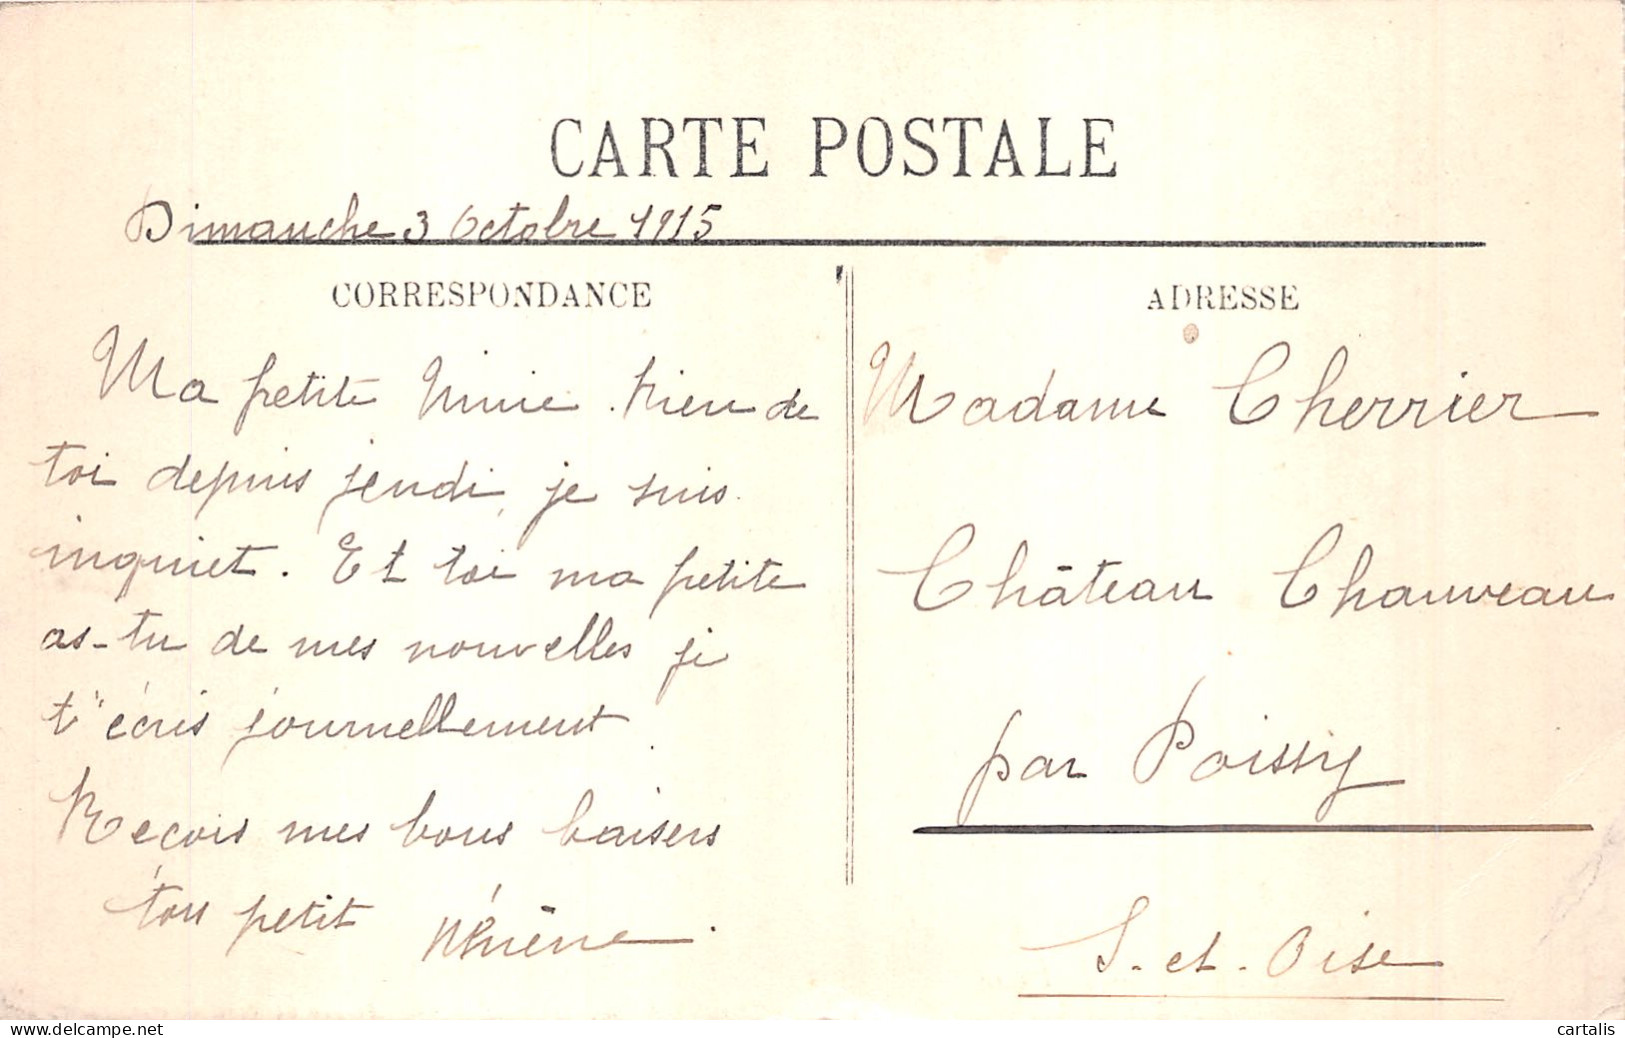 CARTE POSTALE
Dimanche 3 Octobre 1915
CORRESPONDANCE
Ma petite Mimie. Rien de
toi depuis jeudi, je suis
inquiet. Et toi ma petite
as-tu de mes nouvelles je
t'écris journellement.
Reçois mes bons baisers
ton petit
ADRESSE
Madame Cherrier
Château Chauveau
par Poissy
S.-et-Oise
cartalis
delcampe.net